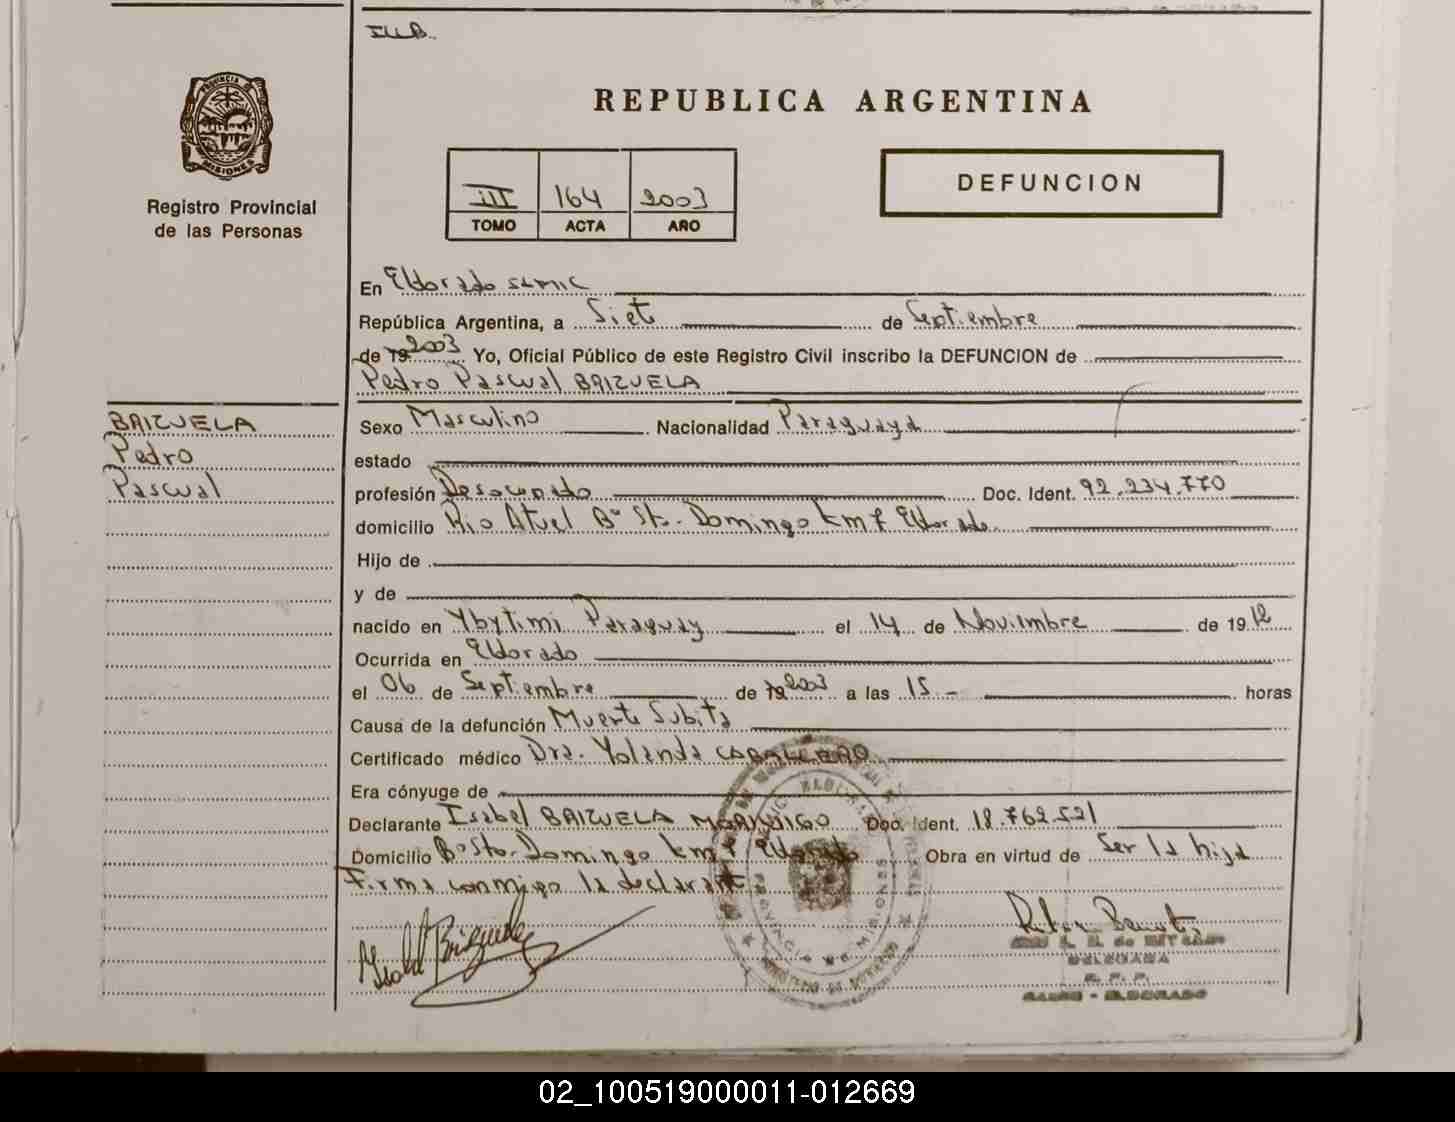 REPUBLICA ARGENTINA
PROVINCIA DE
MISIONES
Registro Provincial
de las Personas
III 164 2003
TOMO ACTA AÑO
DEFUNCION
En Eldorado
República Argentina, a Siete de Septiembre
de 19 2003 Yo, Oficial Público de este Registro Civil inscribo la DEFUNCION de
Pedro Pascual BRIZUELA
BRIZUELA
Pedro
Pascual
Sexo Masculino Nacionalidad Paraguaya
estado
profesión Desocupado Doc. Ident. 92.234.770
domicilio Rio Atuel Bº Sto. Domingo km 7 Eldorado
Hijo de
y de
nacido en Ybytimi Paraguay el 14 de Noviembre de 1912
Ocurrida en Eldorado
el 06 de Septiembre de 19 2003 a las 15.- horas
Causa de la defunción Muerte Subita
Certificado médico Dra. Yolanda CABALLERO
Era cónyuge de
Declarante Isabel BRIZUELA MORINIGO Doc. Ident. 18.762.521
Domicilio Bº Sto. Domingo km 7 Eldorado Obra en virtud de Ser la hija
Firma conmigo la declarante
DELEGADA
R. P. P.
ELDORADO
02_100519000011-012669